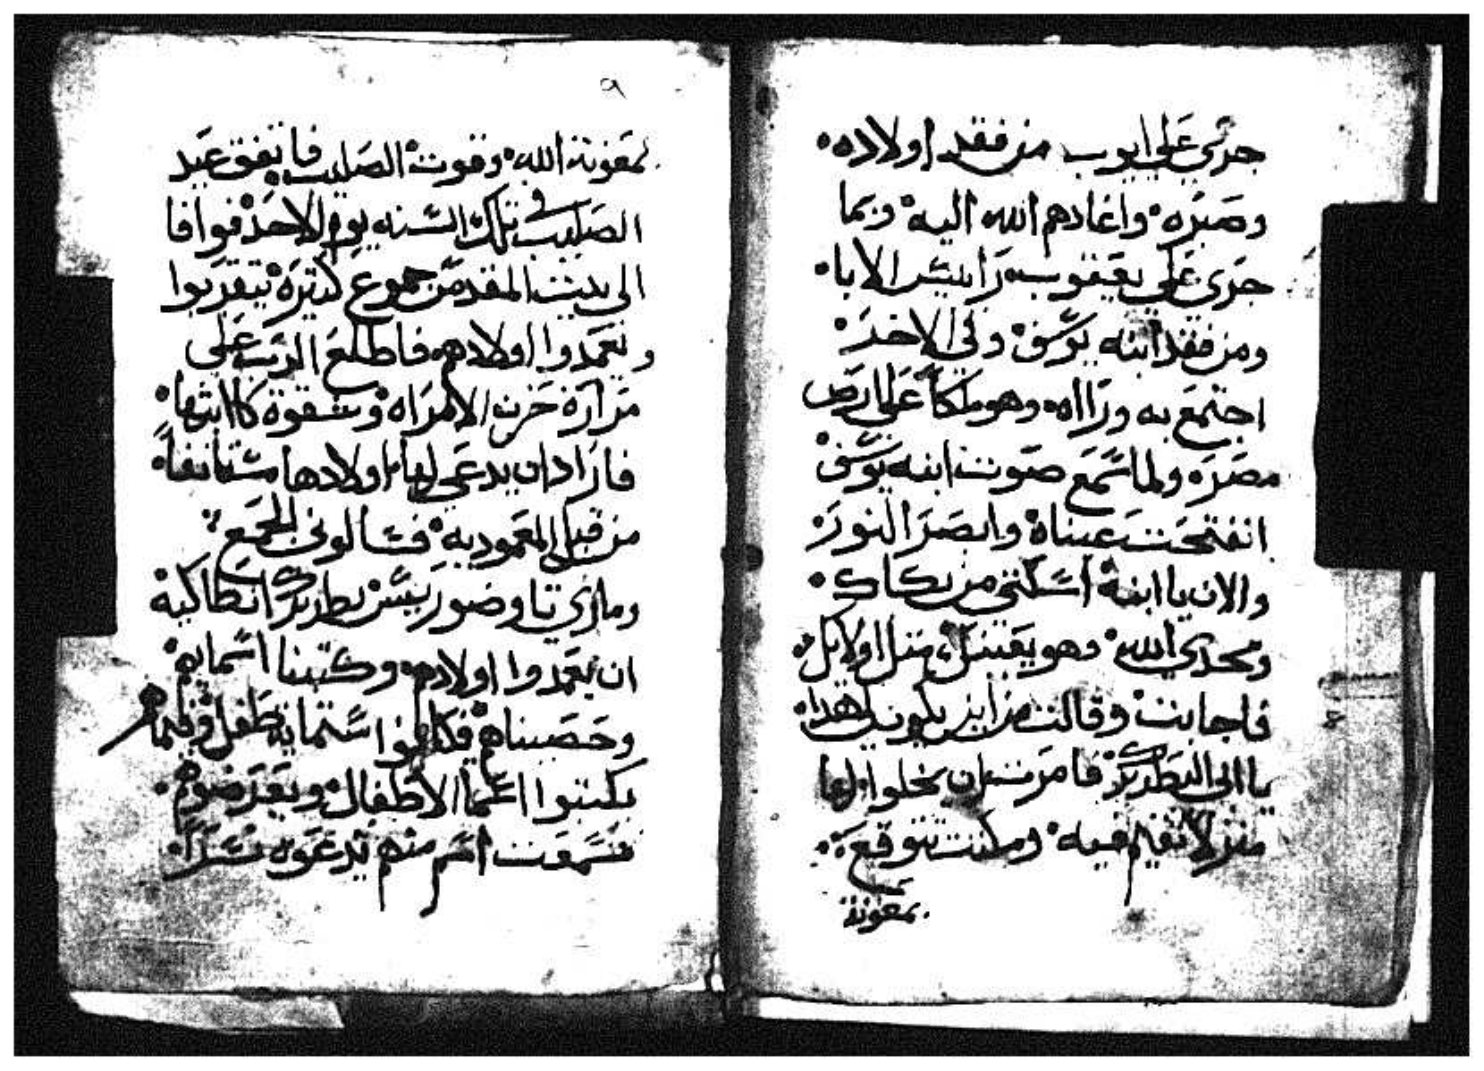 جرى على ايوب من فقد اولاده
وصبره واعادهم الله اليه وبما
جرى على يعقوب راييس الابا
ومن فقد ابنه يوسف وفي الاخر
اجتمع به وراه وهو ملكاً على ارض
مصر ولما سمع صوت ابنه يوسف
انفتحت عيناه وابصر النور
والان يا ابنة اسكتي من بكاك
ومجدي الله وهو يقبل
فاجابت وقالت من اين يكون لي هذا
يا ابي البطريرك فامرت ان يخلوا لها
منزلاً تقيم فيه ومكثت تتوقع
بمعونة
٩
بمعونة الله وقوت الصليب فاتفق عيد
الصليب في تلك السنه يوم الاحد فوافا
الى بيت المقدس جموع كثيرة تيقربوا
ويعمدوا اولادهم فاطلع الرب على
مرارة حزن الامراه وشقوة كاابتها
فاراد ان يدعي لها اولادها مستانفاً
من قبل المعموديه فسالوني الجمع
وماري تاوضورس بطريرك انطاكية
ان نعمدوا اولادهم وكتبنا اسمايهم
وحصيناهم فكانوا ستماية طفل وفيما هم
يكتبوا اسما الاطفال ويعرضوهم
فسمعت اسم منهم تدعوه